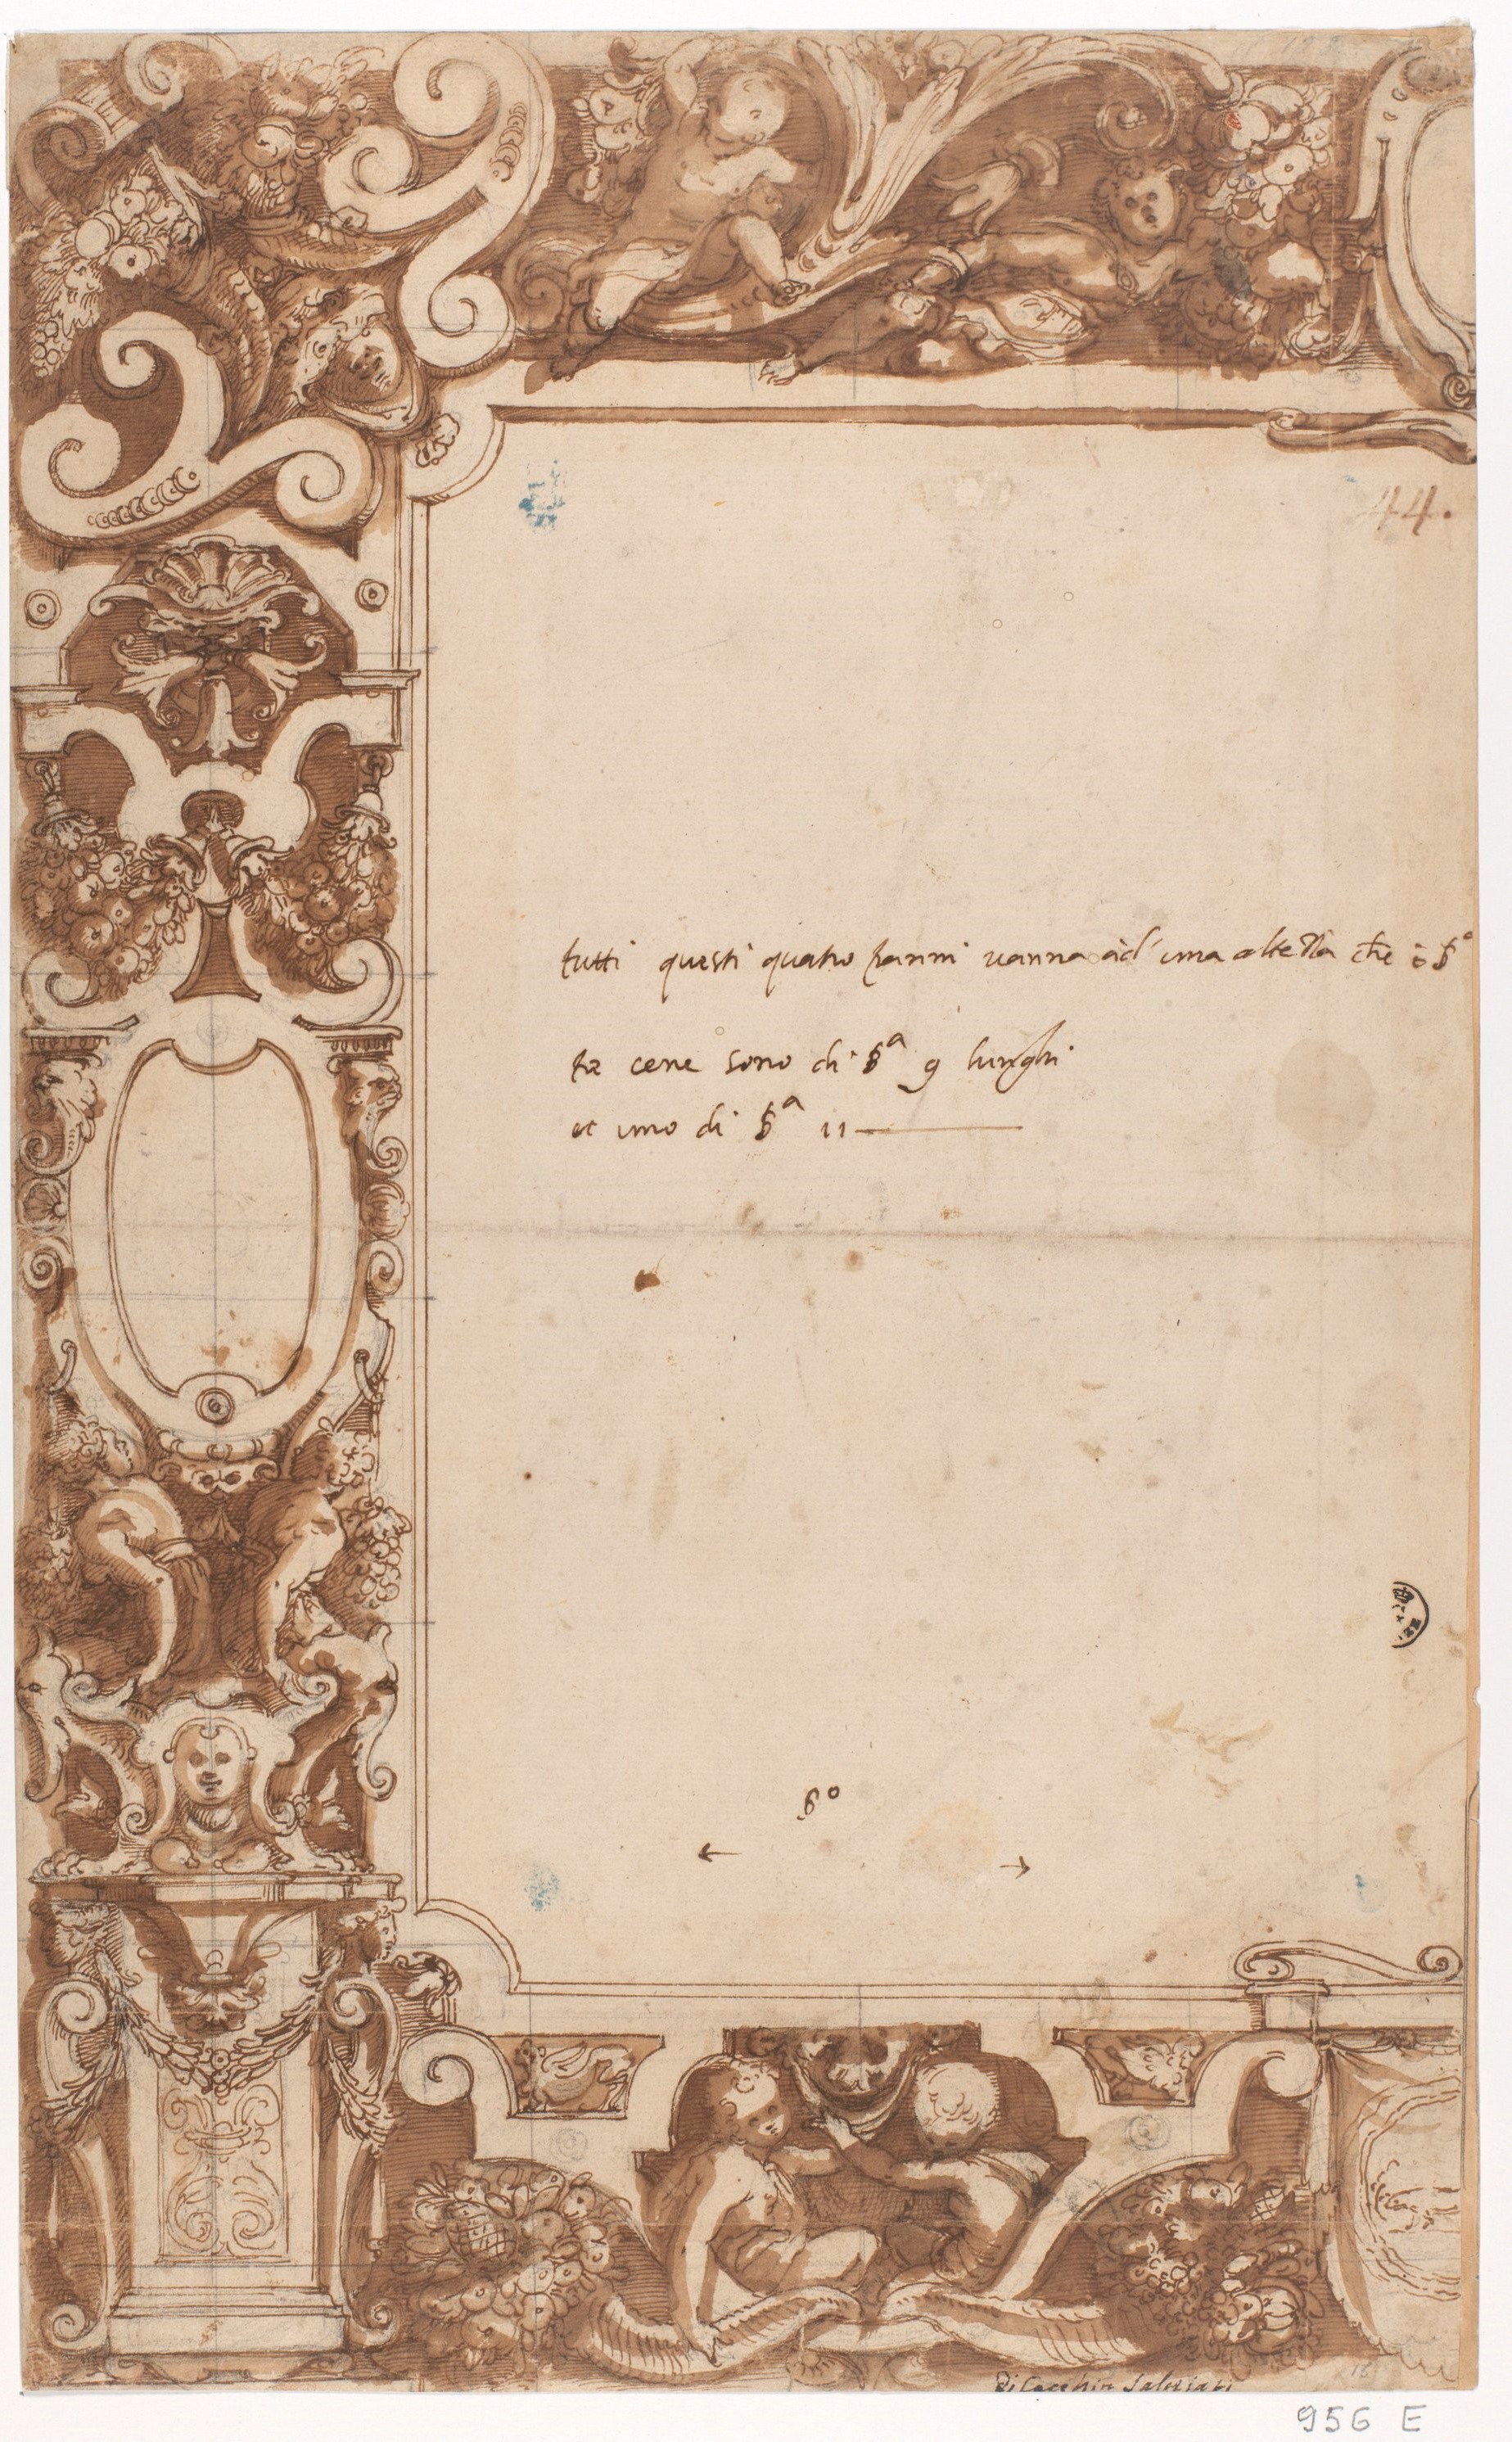 44.
tutti questi quatro panni vanna ad' una altezza che è
ce ne sono di 9 lunghi
et uno di 11
di Cecchin Salviati
956 E